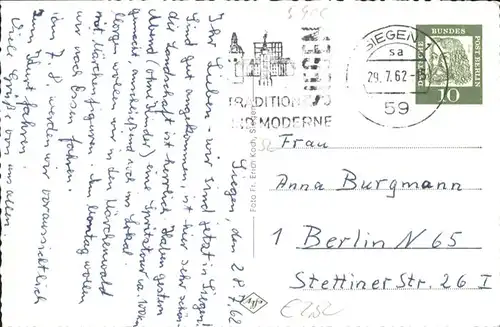 Siegen, den 28.7.62
Ihr Lieben - wir sind jetzt in Siegen!
Sind gut angekommen, ist hier sehr schön,
die Landschaft ist herrlich. Haben gestern
Abend (ohne Kinder) eine Spritztour
gemacht anschließend noch ins Lokal.
Morgen wollen wir in den Märchenwald
mit Märchenfiguren. Am Montag wollen
wir nach Essen fahren.
Am 7.8 werden wir voraussichtlich
fahren!
Viele Grüße von uns allen
Foto Fr. Erich Koch, Siegen
SIEGEN
TRADITION
UND MODERNE
SIEGEN 1
sa
29.7.62
59
DEUTSCHE
BUNDES
POST BERLIN
10
Frau
Anna Burgmann
1 Berlin N 65
Stettiner Str. 26 I